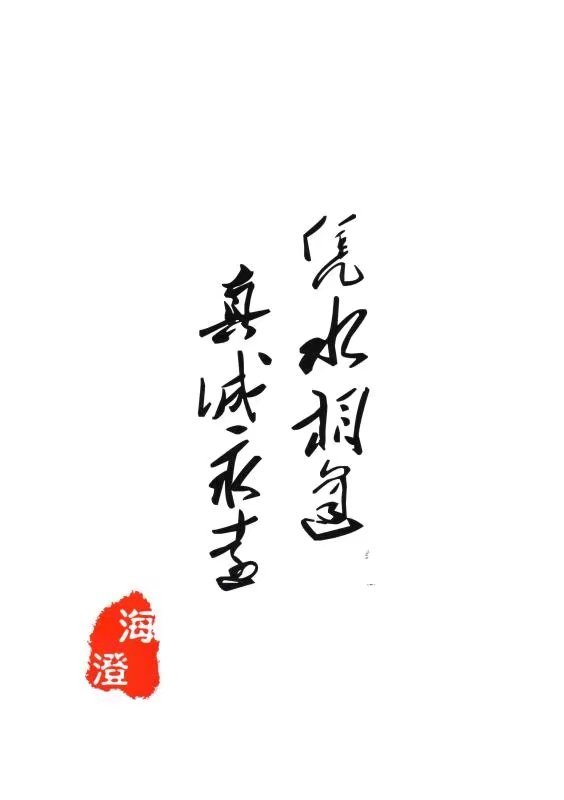 凭水相逢
真诚永遠
海澄